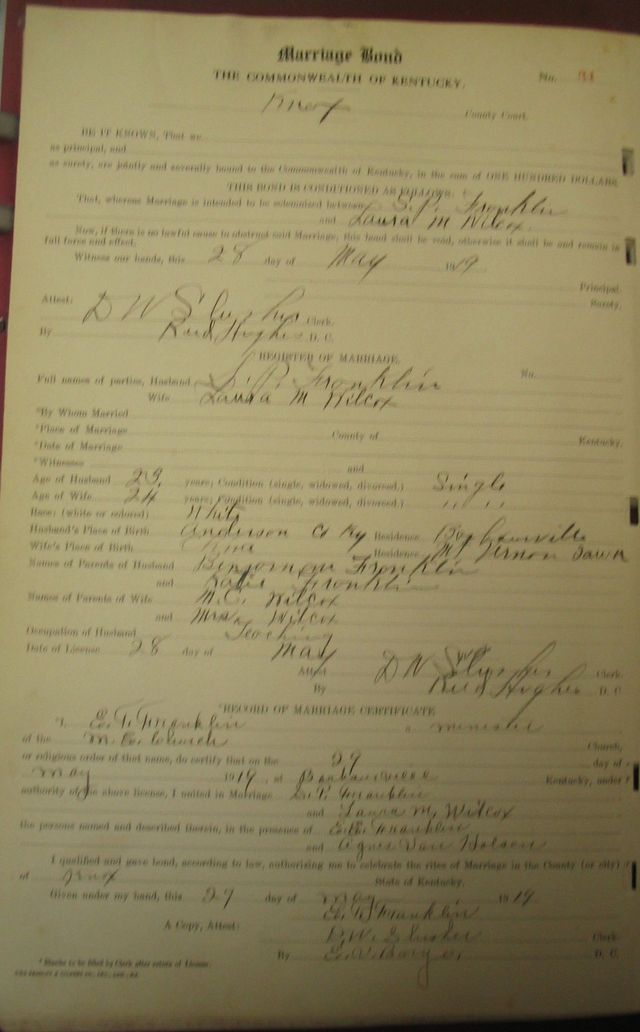 Marriage Bond
THE COMMONWEALTH OF KENTUCKY,
No.
Knox County Court.
BE IT KNOWN, That we
as principal, and
as surety, are jointly and severally bound to the Commonwealth of Kentucky, in the sum of ONE HUNDRED DOLLARS
THIS BOND IS CONDITIONED AS FOLLOWS:
That, whereas Marriage is intended to be solemnized between S. P. Franklin
and Laura M Wilcox.
Now, if there is no lawful cause to obstruct said Marriage, this bond shall be void, otherwise it shall be and remain in
full force and effect.
Witness our hands, this 28 day of May 1919
Principal.
Surety.
Attest: D W Slusher Clerk.
By Reed Hughes D. C.
REGISTER OF MARRIAGE.
Full names of parties, Husband S. P. Franklin No.
Wife Laura M Wilcox
*By Whom Married
*Place of Marriage County of Kentucky.
*Date of Marriage
*Witnesses and
Age of Husband 23. years; Condition (single, widowed, divorced.) Single
Age of Wife 24 years; Condition (single, widowed, divorced.) " "
Race: (white or colored) White
Husband's Place of Birth Anderson Co Ky Residence
Wife's Place of Birth Residence Mt Vernon Iowa
Names of Parents of Husband Benjamin Franklin
and Franklin
Names of Parents of Wife M.C. Wilcox
and Mrs. Wilcox
Occupation of Husband Teaching
Date of License 28 day of May
Attest D W Slusher Clerk
By Reed Hughes D. C
RECORD OF MARRIAGE CERTIFICATE
I, E. T. Franklin a minister
of the M. E. Church Church,
or religious order of that name, do certify that on the 29 day of
May 1919, at Kentucky, under
authority of the above license, I united in Marriage S. P. Franklin
and Laura M. Wilcox
the persons named and described therein, in the presence of Franklin
and Agnes Van
I qualified and gave bond, according to law, authorizing me to celebrate the rites of Marriage in the County (or city)
of Knox State of Kentucky.
Given under my hand, this 29 day of May 1919
E. T. Franklin
A Copy, Attest: D. W. Slusher Clerk
By D. C.
* Blanks to be filled by Clerk after return of License.